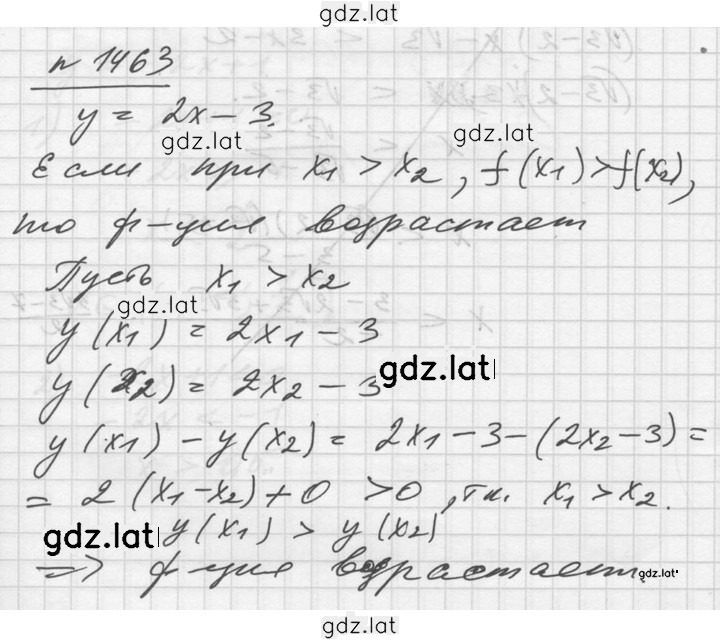 gdz.lat
n 1463
y = 2x - 3.
gdz.lat
gdz.lat
Если при x₁ > x₂, f(x₁) > f(x₂),
то ф-ция возрастает
Пусть x₁ > x₂
gdz.lat
y(x₁) = 2x₁ - 3
gdz.lat
y(x₂) = 2x₂ - 3
y(x₁) - y(x₂) = 2x₁ - 3 - (2x₂ - 3) =
= 2(x₁ - x₂) + 0 > 0, т.к. x₁ > x₂.
gdz.lat
y(x₁) > y(x₂)
=> ф-ция возрастает
gdz.lat
gdz.lat